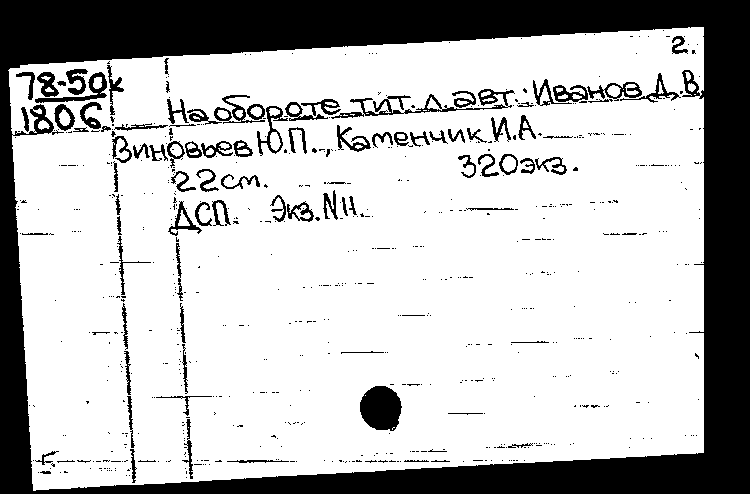 2.
78-50к
1806
На обороте тит. л. авт.: Иванов Д.В.,
Зиновьев Ю.П., Каменчик И.А.
22см. 320экз.
ДСП. Экз.N11.
5